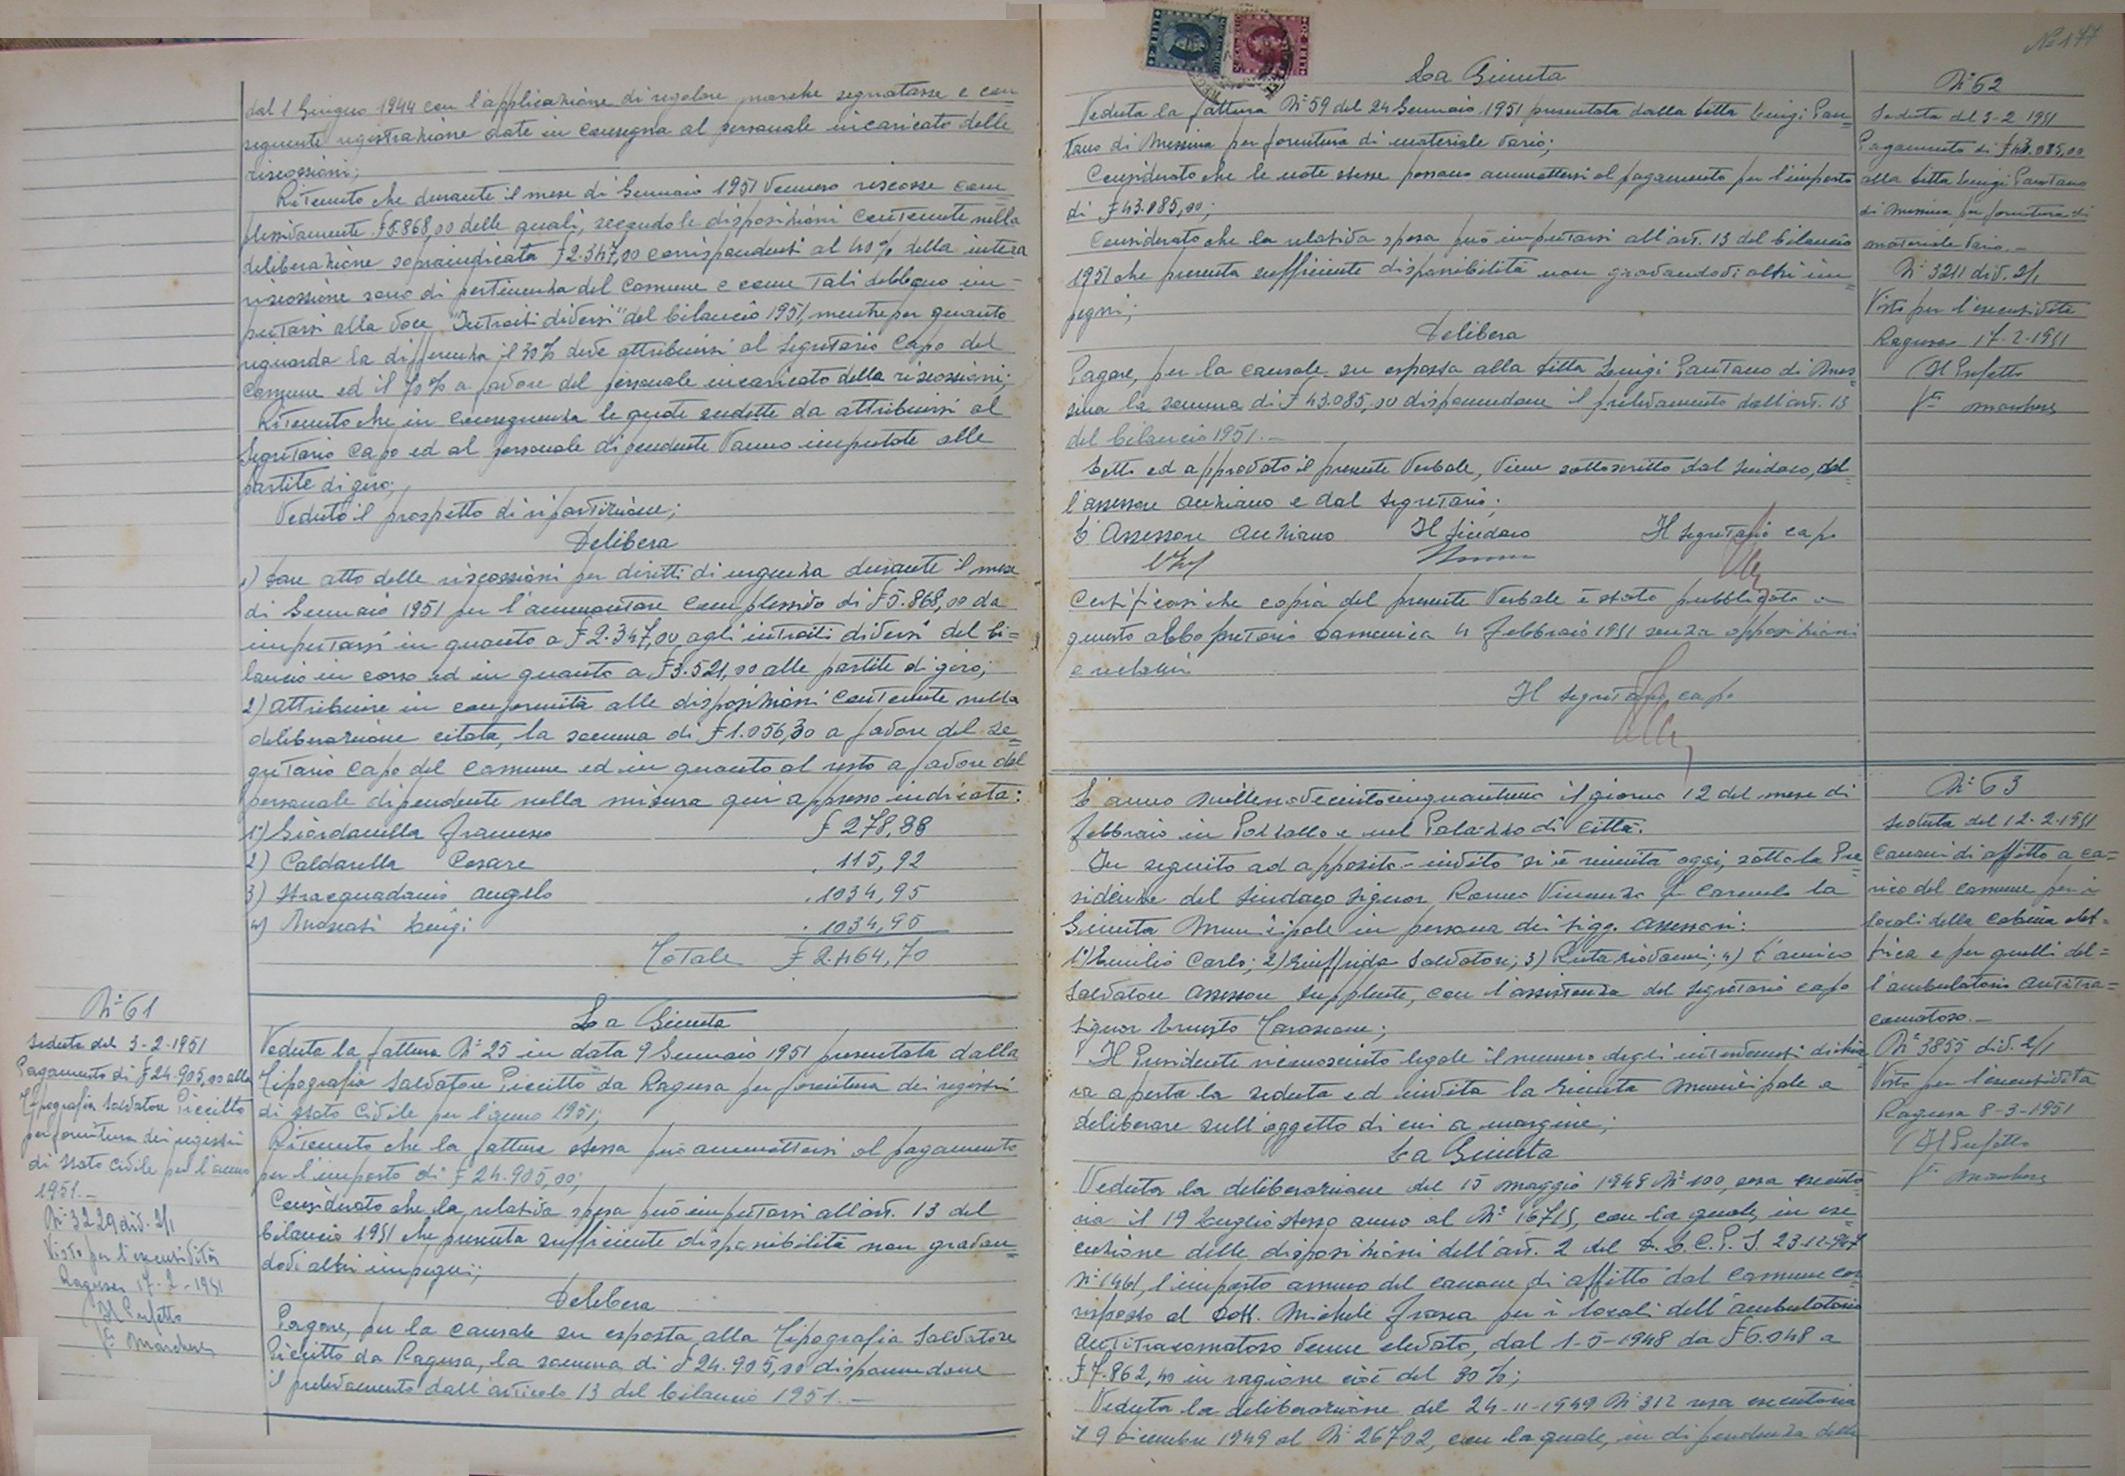 dal 1 Giugno 1944 con l'applicazione di regolare marche segnatasse e con
seguente registrazione date in consegna al personale incaricato delle
riscossioni;
Ritenuto che durante il mese di Gennaio 1951 vennero riscosse com-
plessivamente £ 5.868,00 delle quali, secondo le disposizioni contenute nella
deliberazione sopraindicata £ 2.347,00 corrispondenti al 40% della intera
riscossione sono di pertinenza del Comune e come tali debbono im-
putarsi alla voce "Introiti diversi" del bilancio 1951, mentre per quanto
riguarda la differenza il 30% deve attribuirsi al Segretario Capo del
Comune ed il 70% a favore del personale incaricato della riscossioni;
Ritenuto che in conseguenza le quote sudette da attribuirsi al
Segretario Capo ed al personale dipendente vanno imputate alle
partite di giro;
Veduto il prospetto di ripartizione;
Delibera
1) Dare atto delle riscossioni per diritti di urgenza durante il mese
di Gennaio 1951 per l'ammontare complessivo di £ 5.868,00 da
imputarsi in quanto a £ 2.347,00 agli introiti diversi del bi=
lancio in corso ed in quanto a £ 3.521,00 alle partite di giro;
2) Attribuire in conformità alle disposizioni contenute nella
deliberazione citata, la somma di £ 1.056,30 a favore del Se=
gretario Capo del Comune ed in quanto al resto a favore del
personale dipendente nella misura qui appresso indicata:
1°) Giordanella Francesco £ 278,88
2) Caldarella Cesare . 115,92
3) Stracquadanio Angelo . 1034,95
4) Moscati Luigi . 1034,95
Totale £ 2.464,70
N° 61
Seduta del 3-2-1951
Pagamento di £ 24.905,00 alla
Tipografia Salvatore Piccitto
per fornitura dei registri
di Stato Civile per l'anno
1951.-
N° 3229 div. 2/1
Visto per l'esecutività
Ragusa 17-2-1951
Il Prefetto
La Giunta
Veduta la fattura N° 25 in data 9 Gennaio 1951 presentata dalla
Tipografia Salvatore Piccitto da Ragusa per fornitura dei registri
di Stato Civile per l'anno 1951;
Ritenuto che la fattura stessa può ammettersi al pagamento
per l'importo di £ 24.905,00;
Considerato che la relativa spesa può imputarsi all'art. 13 del
bilancio 1951 che presenta sufficiente disponibilità non gravan=
dovi altri impegni;
Delibera
Pagare, per la causale su esposta, alla Tipografia Salvatore
Piccitto da Ragusa, la somma di £ 24.905,00 disponendone
il prelevamento dall'articolo 13 del bilancio 1951.-
N° 177
La Giunta
Veduta la fattura N° 59 del 24 Gennaio 1951 presentata dalla Ditta Luigi Pan=
tano di Messina per fornitura di materiale vario;
Considerato che le note stesse possano ammettersi al pagamento per l'importo
di £ 43.085,00;
Considerato che la relativa spesa può imputarsi all'art. 13 del bilancio
1951 che presenta sufficiente disponibilità non gravandovi altri im=
pegni;
Delibera
Pagare, per la causale su esposta alla Ditta Luigi Pantano di Mes=
sina la somma di £ 43.085,00 disponendone il prelevamento dall'art. 13
del bilancio 1951.-
Letto ed approvato il presente verbale, viene sottoscritto dal Sindaco, dal
l'assessore anziano e dal segretario.
L'Assessore Anziano Il Sindaco Il Segretario capo
Certificasi che copia del presente verbale è stata pubblicata a
questo albo pretorio domenica 4 Febbraio 1951 senza opposizioni
e reclami
Il Segretario capo
N° 62
Seduta del 3-2-1951
Pagamento di £ 43.085,00
alla Ditta Luigi Pantano
di Messina per fornitura di
materiale vario.-
N° 3211 div. 2/1
Visto per l'esecutività
Ragusa 17-2-1951
Il Prefetto
L'anno millenovecentocinquantuno il giorno 12 del mese di
Febbraio in Pozzallo e nel Palazzo di Città.
In seguito ad apposito invito si è riunita oggi, sotto la Pre=
sidenza del Sindaco Signor Romeo Vincenzo fu Carmelo la
Giunta Municipale in persona dei Sigg. Assessori:
1°) Emilio Carlo; 2) Giuffrida Salvatore; 3) Ruta Giovanni; 4) D'amico
Salvatore Assessore Supplente, con l'assistenza del Segretario capo
Signor Ernesto Tarascone;
Il Presidente riconosciuto legale il numero degli intervenuti dichia
ra aperta la seduta ed invita la Giunta Municipale a
deliberare sull'oggetto di cui a margine;
La Giunta
Veduta la deliberazione del 15 maggio 1948 N° 100, resa esecuto
ria il 19 Luglio stesso anno al N° 16715, con la quale, in ese=
cuzione delle disposizioni dell'art. 2 del D.L.C.P.S. 23-12-947
N° 1461, l'importo annuo del canone di affitto dal Comune cor
risposto al Dott. Michele Frasca per i locali dell'ambulatorio
Antitracomatoso venne elevato, dal 1-5-1948 da £ 6.048 a
£ 7.862,40 in ragione cioè del 30%;
Veduta la deliberazione del 24-11-1949 N° 312 resa esecutoria
il 9 Dicembre 1949 al N° 26702, con la quale, in dipendenza delle
N° 63
Seduta del 12-2-1951
Canoni di affitto a ca=
rico del Comune per i
locali della cabina elet=
trica e per quelli del=
l'ambulatorio Antitra=
comatoso.-
N° 3855 div. 2/1
Visto per l'esecutività
Ragusa 8-3-1951
Il Prefetto